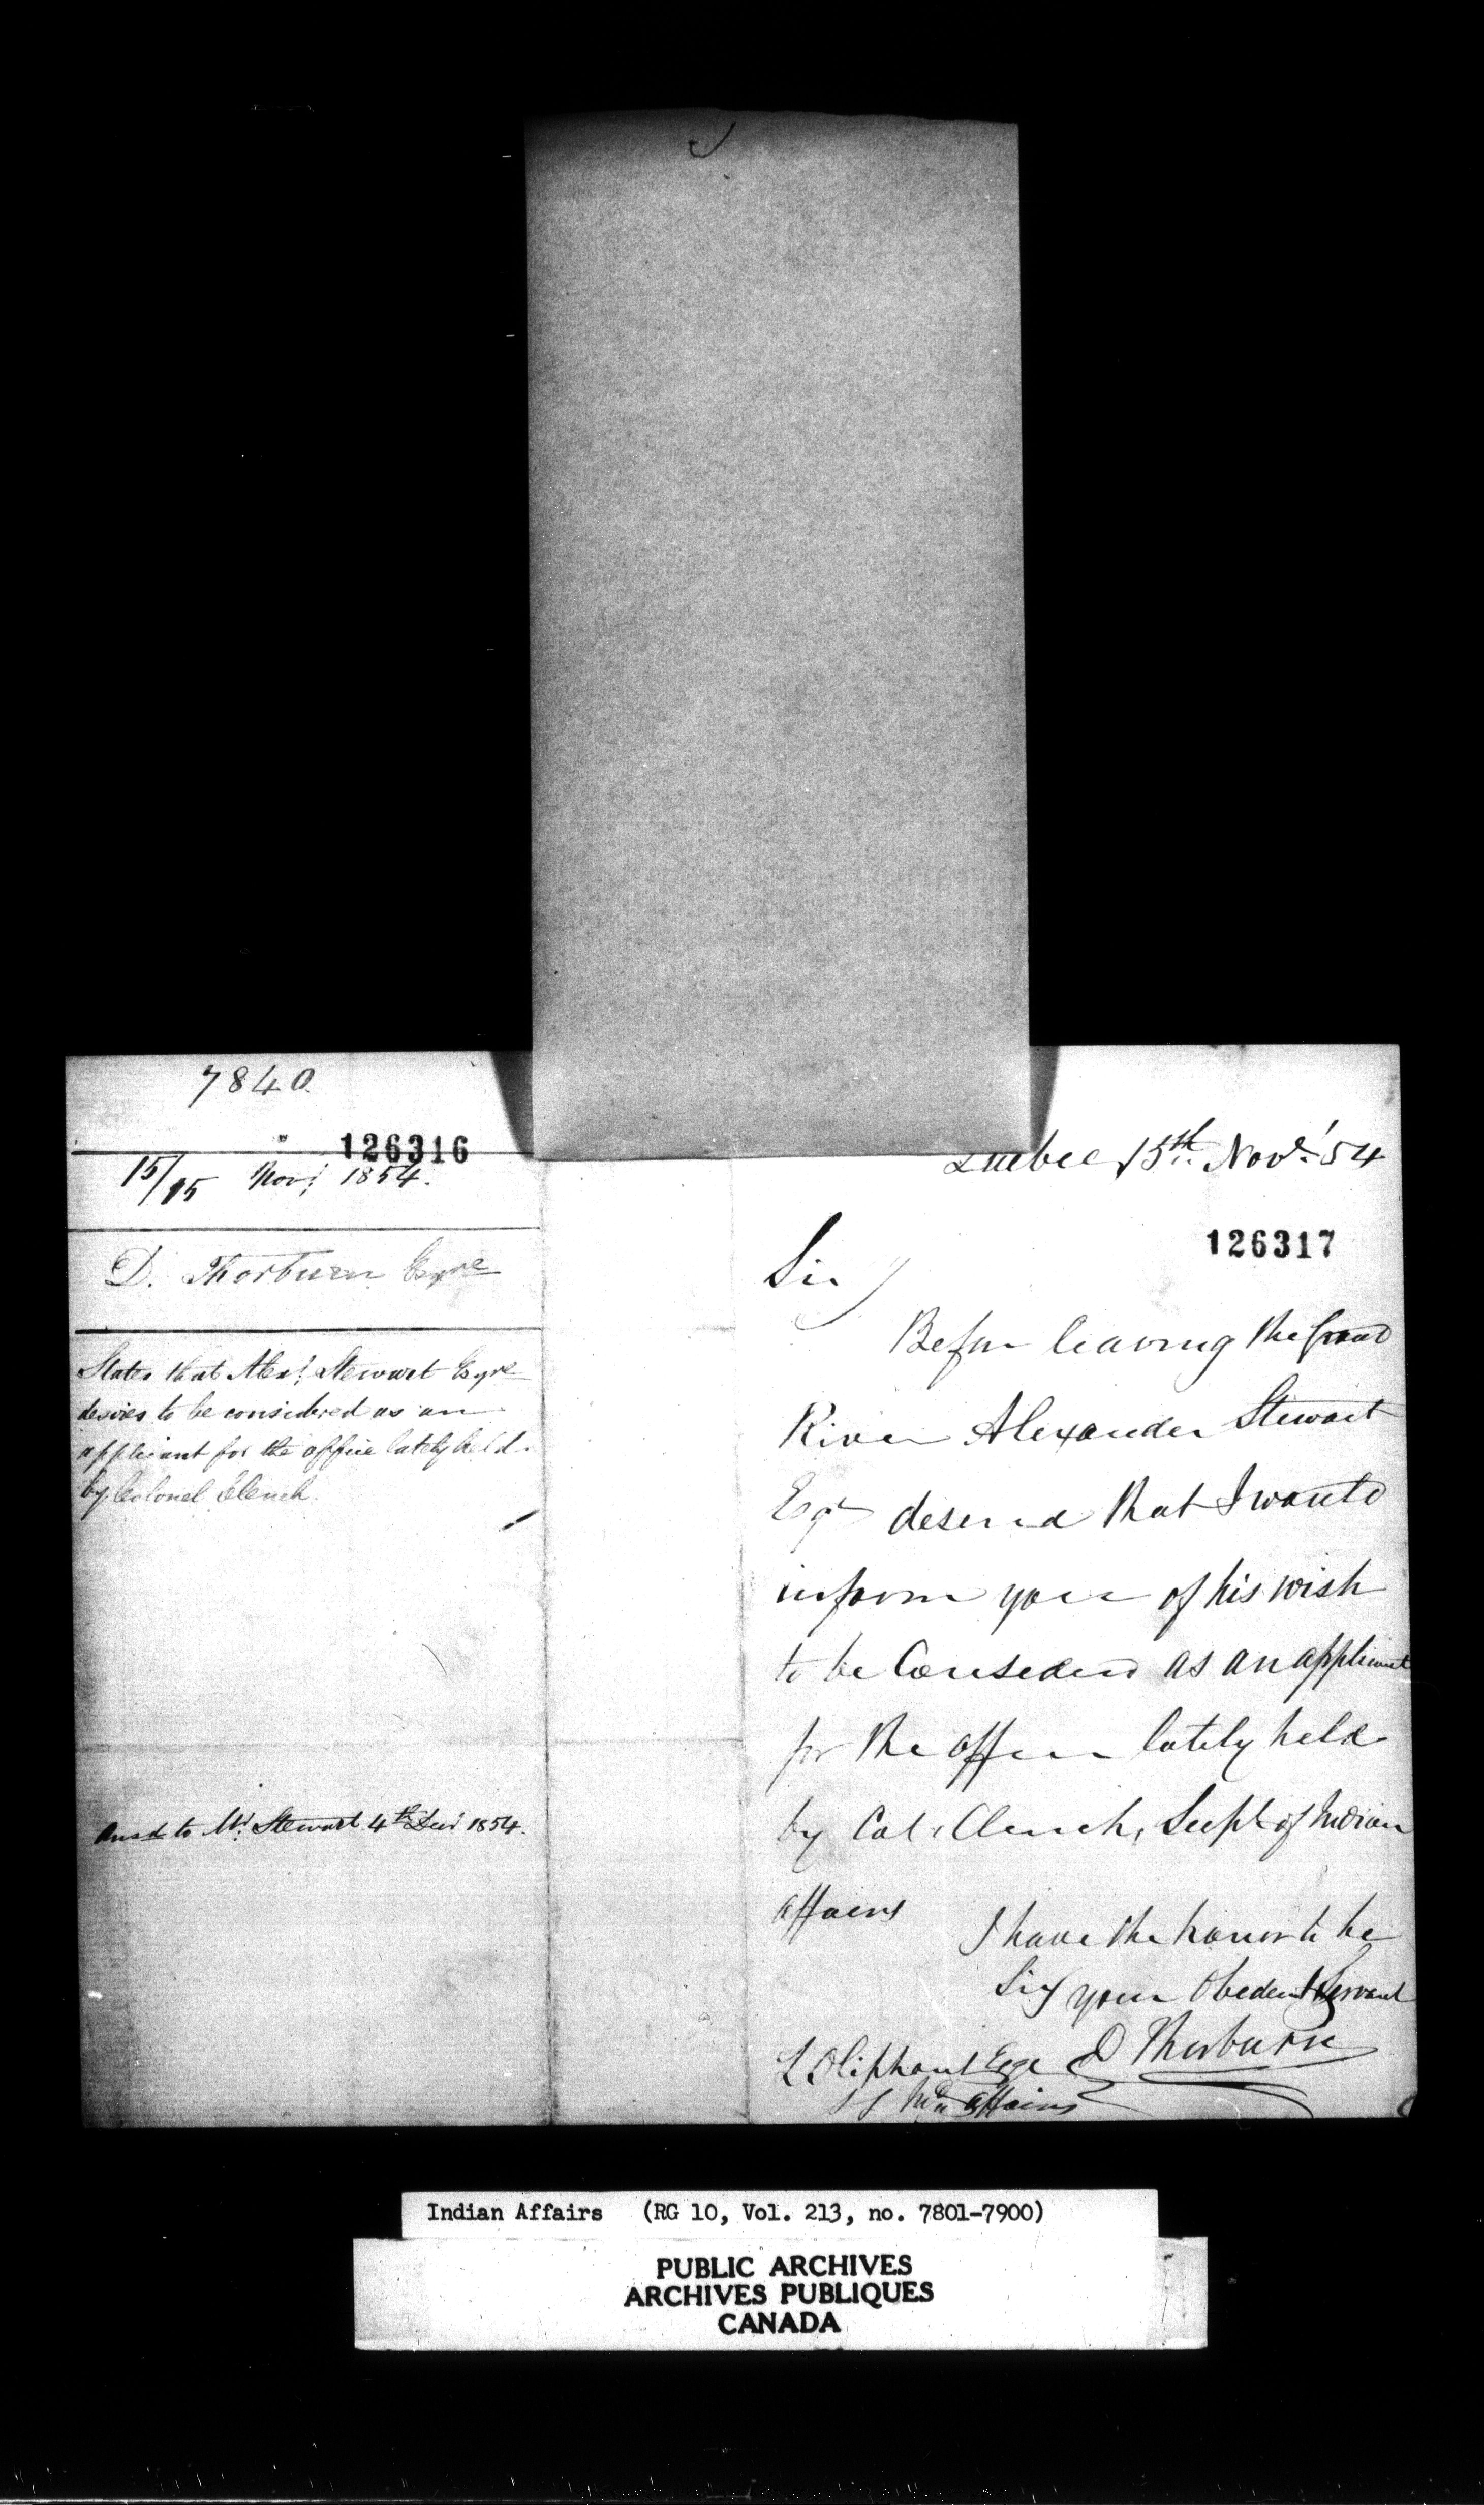 7840
126316
15/15 Novr 1854.
D. Thorburn Esqre
States that Alexr Stewart Esqre
desires to be considered as an
applicant for the office lately held
by Colonel Clench.
Ansd to Mr. Stewart 4th Decr 1854.
Quebec 15th Novr '54
126317
Sir
Before leaving the Grand
River Alexander Stewart
Esqr desired that I would
inform you of his wish
to be Considered as an applicant
for the office lately held
by Col. Clench, Supt of Indian
affairs
I have the honor to be
Sir your Obedient Servant
D Thorburn
L Oliphant Esqe
S I Affairs
Indian Affairs (RG 10, Vol. 213, no. 7801-7900)
PUBLIC ARCHIVES
ARCHIVES PUBLIQUES
CANADA